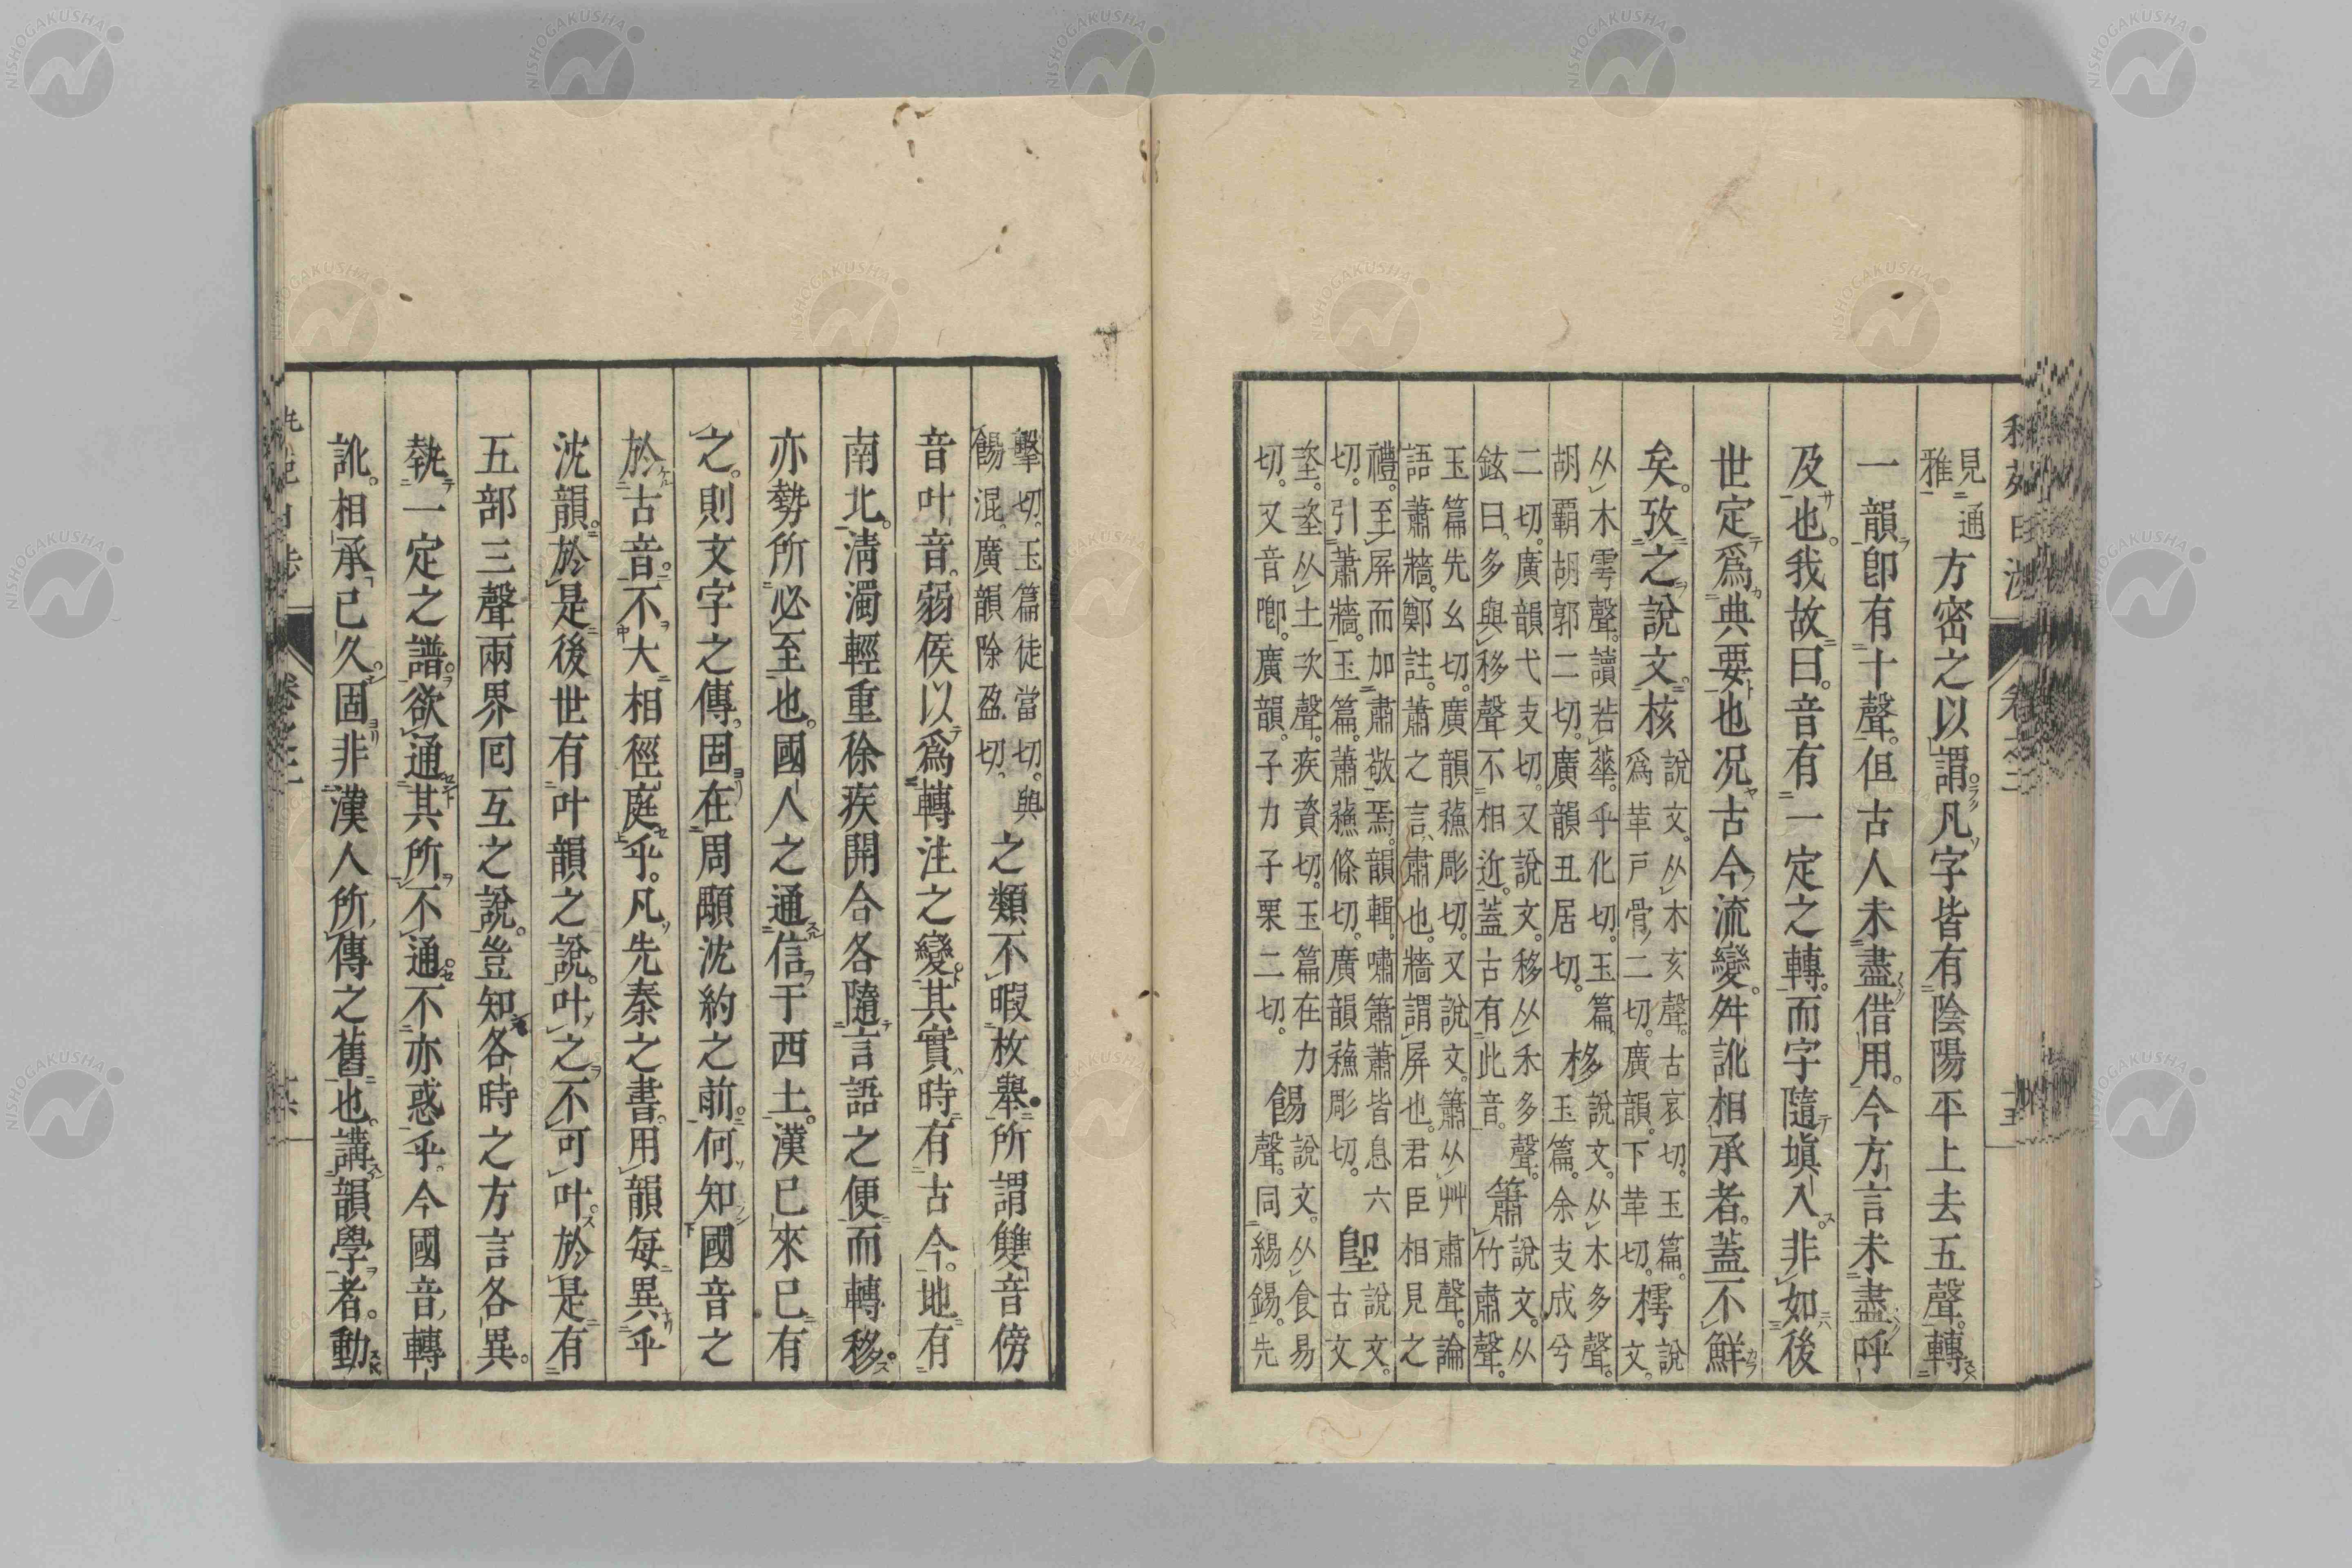 見通方密之以謂凡字皆有陰陽平上去五聲。轉
雅
一韻卽有十聲。但古人未盡借用。今方言未盡呼
及也。我故曰。音有一定之轉。而字隨塡入。非如後
世定爲典要也况古今流變。舛訛相承者。蓋不鮮
矣。攷之說文。核說文。从木亥聲。古哀切。玉篇。樗說
爲革戸骨二切。廣韻。下革切。文。
从木雩聲。讀若華。乎化切。玉篇栘說文。从木多聲。
胡霸胡郭二切。廣韻丑居切。玉篇。余支成兮
二切。廣韻弋支切。又說文。移从禾多聲。簫說文。从
鉉曰。多與移聲不相近。蓋古有此音。竹肅聲。
玉篇先幺切。廣韻蘓彫切。又說文。簫从艸肅聲。論
語蕭牆。鄭註。蕭之言肅也。牆謂屏也。君臣相見之
禮。至屏而加肅敬焉。韻輯。嘯簫蕭皆息六
切。引蕭牆。玉篇。蕭蘓條切。廣韻蘓彫切。
說文。
古文
垐。垐从土次聲。疾資切。玉篇在力餳說文。从食易
切。又音卽。廣韻。子力子栗二切。聲。同緆錫。先
擊切。玉篇徒當切。與之類不暇枚舉。所謂雙音傍
餳混。廣韻除盈切。
音叶音。弱侯以爲轉注之變。其實時有古今。地有
南北。淸濁輕重徐疾開合各隨言語之便而轉移。
亦勢所必至也。國人之通信于西土。漢已來已有
之。則文字之傳。固在周顒沈約之前。何知國音之
於古音。不大相徑庭乎。凡先秦之書。用韻每異乎
沈韻。於是後世有叶韻之說。叶之不可叶。於是有
五部三聲兩界囘互之說。豈知各時之方言各異。
執一定之譜。欲通其所不通。不亦惑乎。今國音轉
訛。相承已久。固非漢人所傳之舊也。講韻學者。動